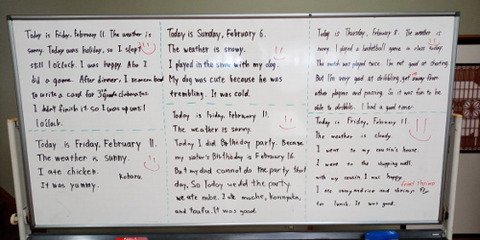 Today is Friday, February 11. The weather is
sunny. Today was holiday, so I slept
still 10'clock. I was happy. Also I
did a game. After dinner, I
to write a card for 3rd grade
I didn't finish it. so I was up until
10'clock.
Today is Friday, February 11.
The weather is sunny.
I ate chicken.
It was yummy.
Today is Sunday, February 6.
The weather is snowy.
I played in the snow with my dog.
My dog was cute because he was
trembling. It was cold.
Today is Friday, February 11.
The weather is sunny.
Today I did Birthday party. Because
my sister's Birthday is February 16
But my dad cannot do the party that
day, So Today we did the party
we ate nabe. I ate mochi, konnyaku,
and toufu. It was good.
Today is Thursday, February 8. The weather is
sunny. I played a basketball game in class today.
The match was played twice. I'm not good at shooting.
But I'm very good at dribbling, get away from
other players and passing. So it was fun to be
able to dribble. I had a good time.
Today is Friday, February 11.
The weather is cloudy.
I went to my cousin's house.
I went to the shopping mall
with my cousin. I was happy.
fried shrimp
I ate and shrimp
for lunch. It was good.